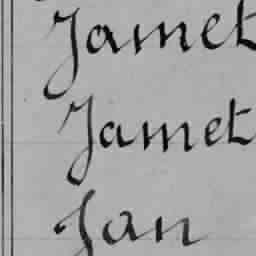 Jamet
Jamet
Jan